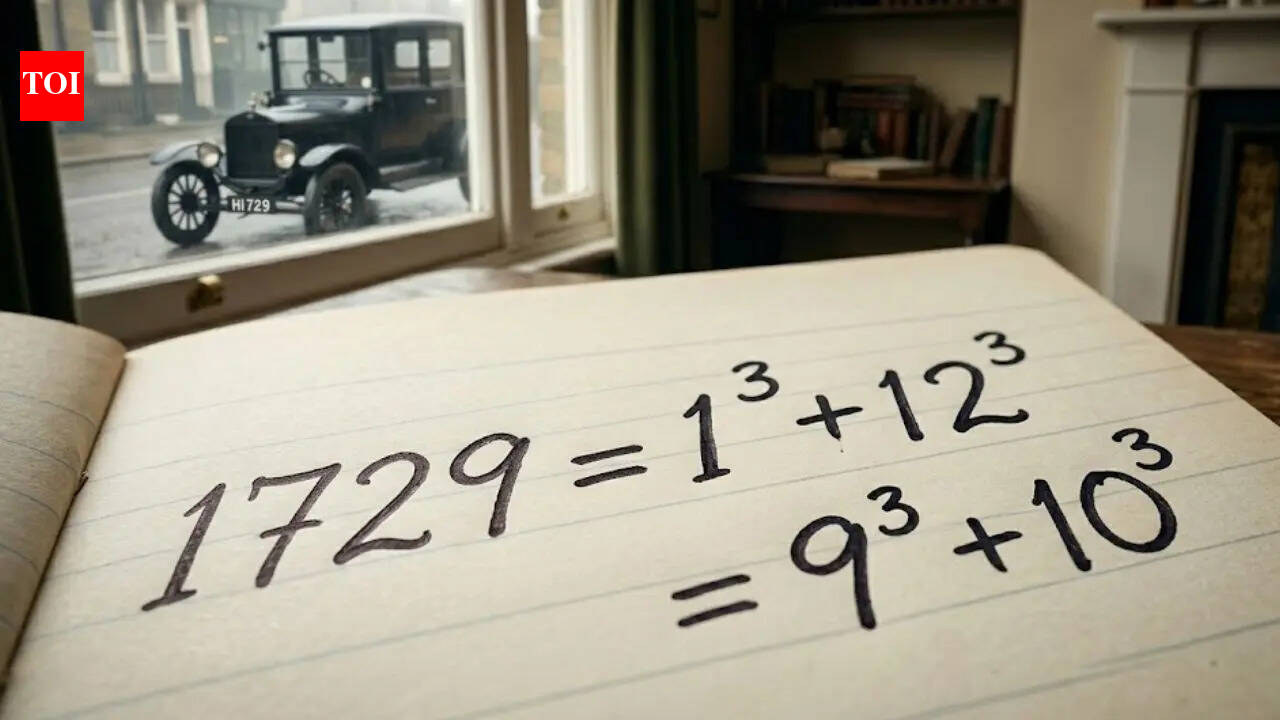 TOI
HI729
1729 = 1³ + 12³
= 9³ + 10³